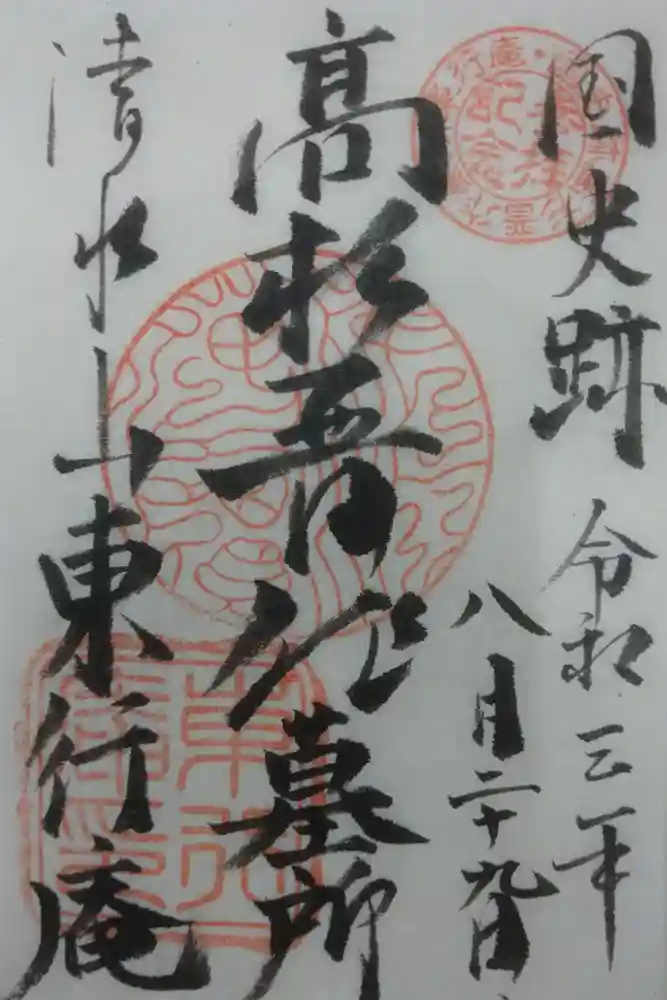 国史跡
令和三年
八月二十九日
高杉晋作墓所
清水山
東行庵
記念